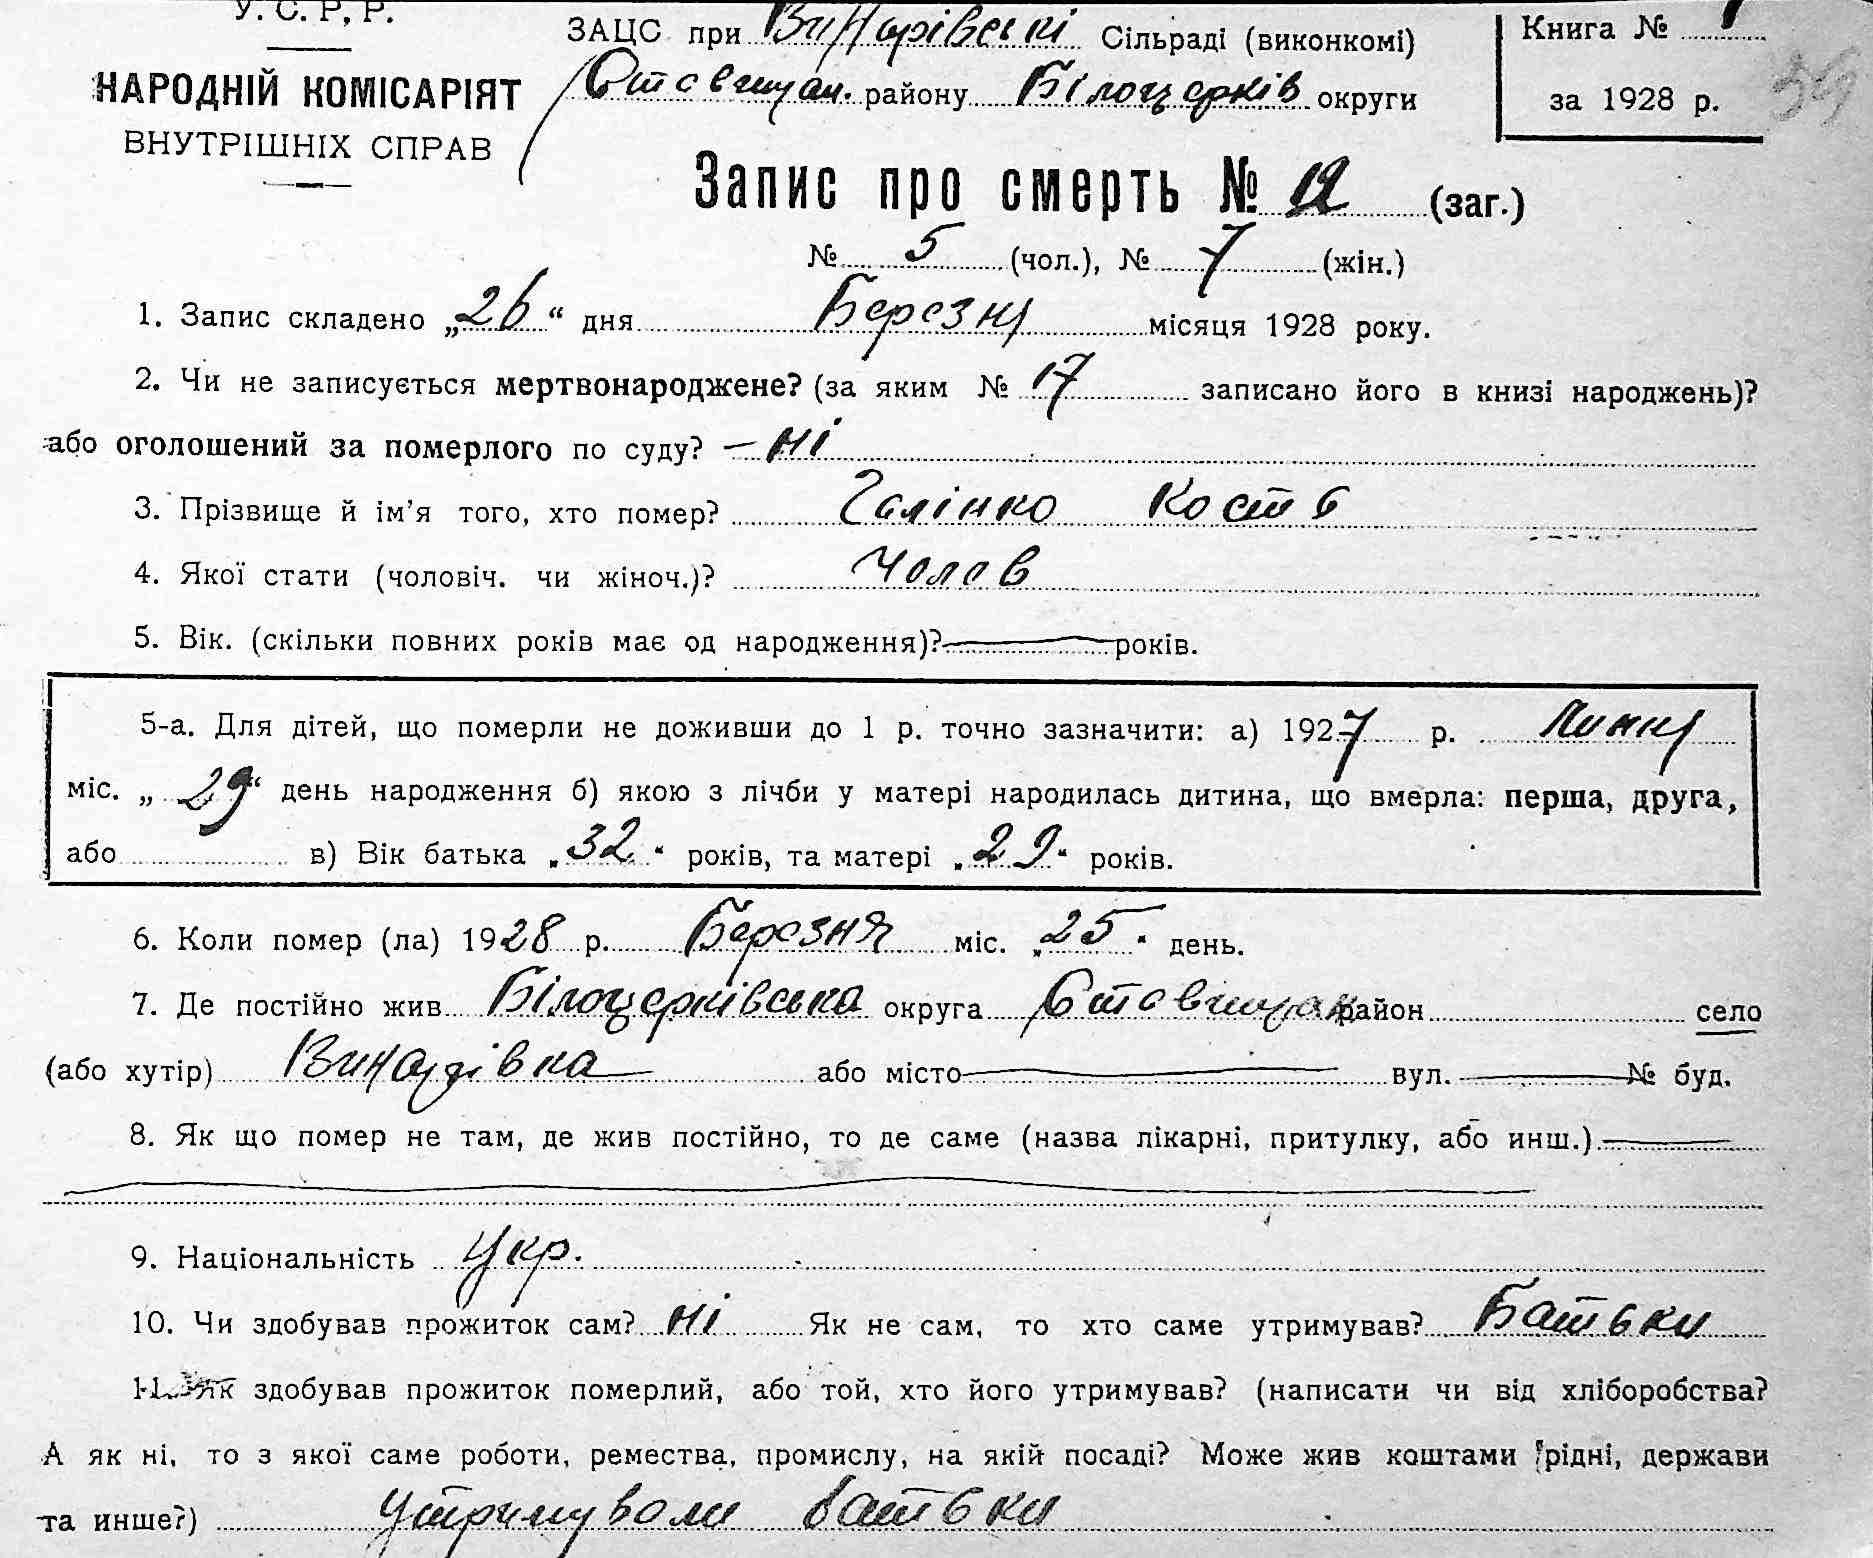 У. С. Р. Р.
НАРОДНІЙ КОМІСАРІЯТ
ВНУТРІШНІХ СПРАВ
ЗАЦС при Винарівські Сільраді (виконкомі)
Ставищан. району Білоцерків округи
Книга №
за 1928 р.
39
Запис про смерть № 12 (заг.)
№ 5 (чол.), № 7 (жін.)
1. Запис складено „26“ дня Березня місяця 1928 року.
2. Чи не записується мертвонароджене? (за яким № 17 записано його в книзі народжень)?
або оголошений за померлого по суду? — ні
3. Прізвище й ім’я того, хто помер? Галінко Кость
4. Якої стати (чоловіч. чи жіноч.)? Чолов
5. Вік. (скільки повних років має од народження)? — років.
5-а. Для дітей, що померли не доживши до 1 р. точно зазначити: а) 1927 р. Липня
міс. „29“ день народження б) якою з лічби у матері народилась дитина, що вмерла: перша, друга,
або в) Вік батька „32“ років, та матері „29“ років.
6. Коли помер (ла) 1928 р. Березня міс. „25“ день.
7. Де постійно жив Білоцерківська округа Ставищан район село
(або хутір) Винарівка або місто — вул. — № буд.
8. Як що помер не там, де жив постійно, то де саме (назва лікарні, притулку, або инш.) —
9. Національність Укр.
10. Чи здобував прожиток сам? ні Як не сам, то хто саме утримував? Батьки
11. Як здобував прожиток померлий, або той, хто його утримував? (написати чи від хліборобства?
А як ні, то з якої саме роботи, ремества, промислу, на якій посаді? Може жив коштами рідні, держави
та инше?) Утримували батьки